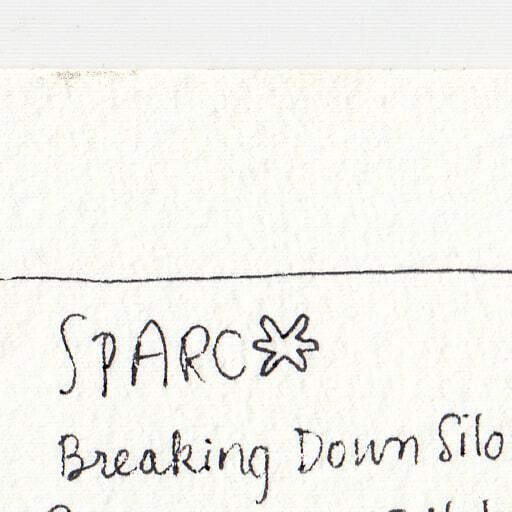 SPARC*
Breaking Down Silo